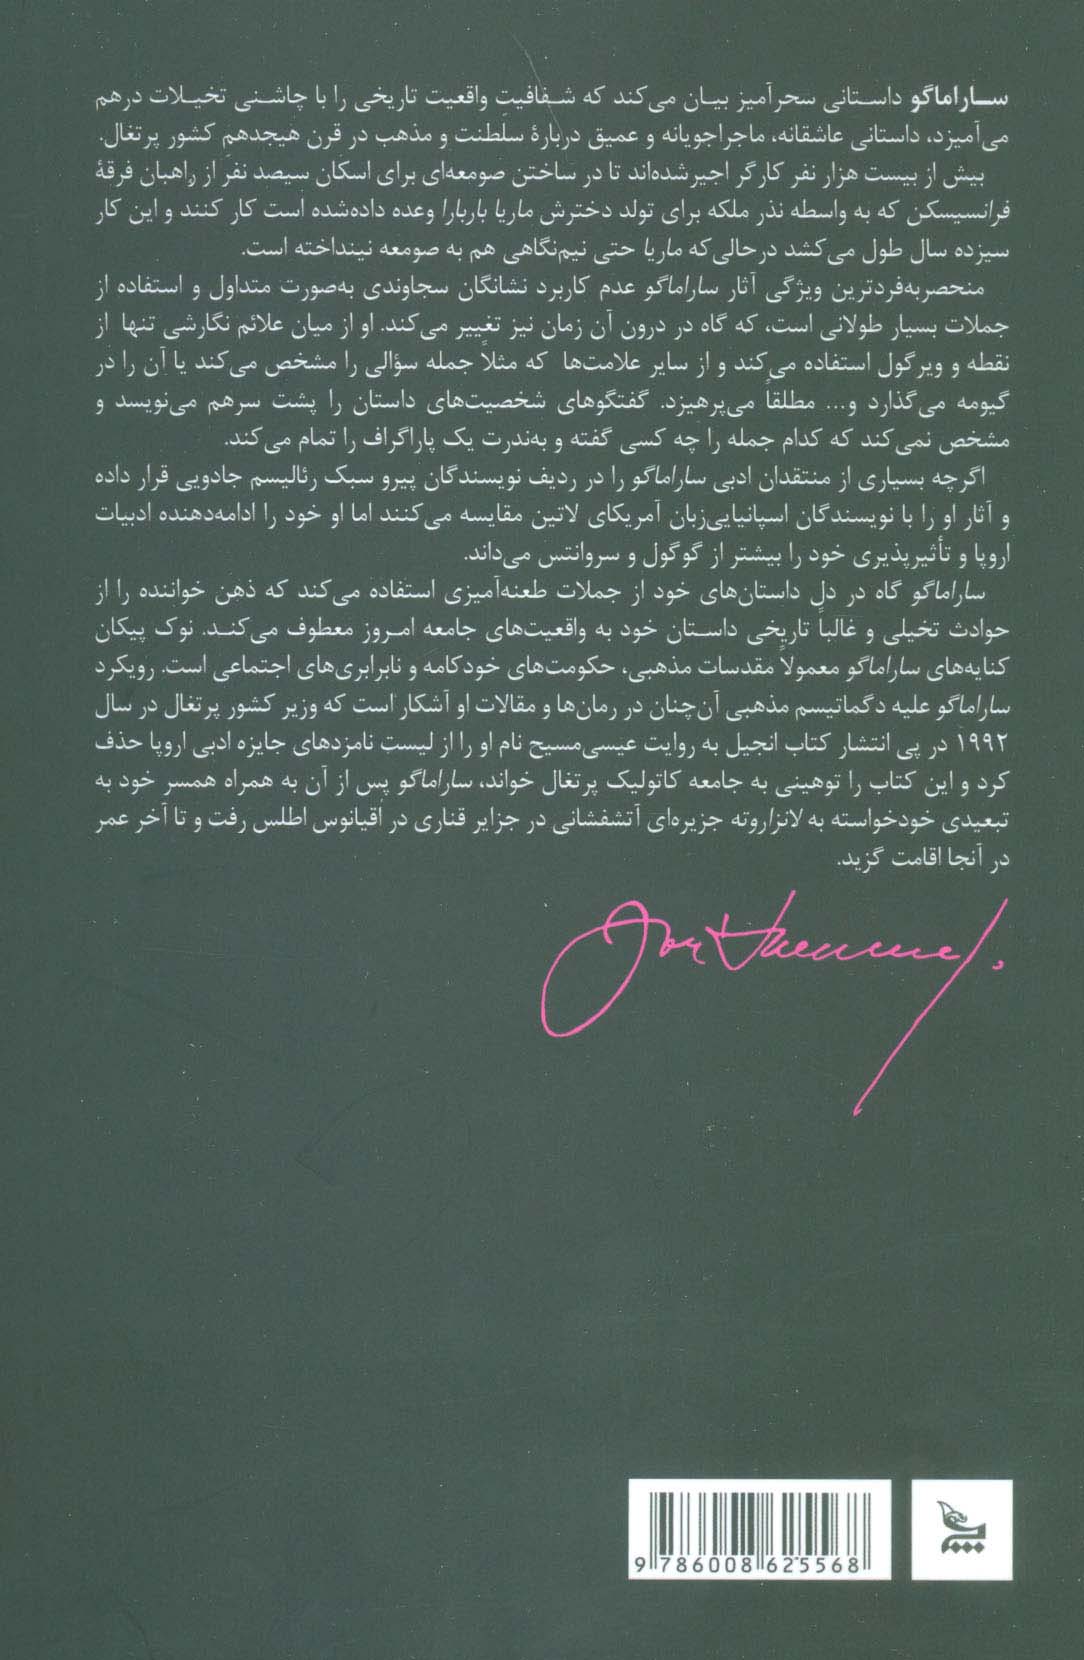 ساراماگو داستانی سحرآمیز بیان می‌کند که شفافیتِ واقعیت تاریخی را با چاشنی تخیلات درهم
می‌آمیزد، داستانی عاشقانه، ماجراجویانه و عمیق دربارهٔ سلطنت و مذهب در قرن هیجدهم کشور پرتغال.
بیش از بیست هزار نفر کارگر اجیرشده‌اند تا در ساختن صومعه‌ای برای اسکان سیصد نفر از راهبان فرقهٔ
فرانسیسکن که به واسطه نذر ملکه برای تولد دخترش ماریا باربارا وعده داده‌شده است کار کنند و این کار
سیزده سال طول می‌کشد درحالی‌که ماریا حتی نیم‌نگاهی هم به صومعه نینداخته است.
منحصربه‌فردترین ویژگی آثار ساراماگو عدم کاربرد نشانگان سجاوندی به‌صورت متداول و استفاده از
جملات بسیار طولانی است، که گاه در درون آن زمان نیز تغییر می‌کند. او از میان علائم نگارشی تنها از
نقطه و ویرگول استفاده می‌کند و از سایر علامت‌ها که مثلاً جمله سؤالی را مشخص می‌کند یا آن را در
گیومه می‌گذارد و... مطلقاً می‌پرهیزد. گفتگوهای شخصیت‌های داستان را پشت سرهم می‌نویسد و
مشخص نمی‌کند که کدام جمله را چه کسی گفته و به‌ندرت یک پاراگراف را تمام می‌کند.
اگرچه بسیاری از منتقدان ادبی ساراماگو را در ردیف نویسندگان پیرو سبک رئالیسم جادویی قرار داده
و آثار او را با نویسندگان اسپانیایی‌زبان آمریکای لاتین مقایسه می‌کنند اما او خود را ادامه‌دهنده ادبیات
اروپا و تأثیرپذیری خود را بیشتر از گوگول و سروانتس می‌داند.
ساراماگو گاه در دل داستان‌های خود از جملات طعنه‌آمیزی استفاده می‌کند که ذهن خواننده را از
حوادث تخیلی و غالباً تاریخی داستان خود به واقعیت‌های جامعه امروز معطوف می‌کند. نوک پیکان
کنایه‌های ساراماگو معمولاً مقدسات مذهبی، حکومت‌های خودکامه و نابرابری‌های اجتماعی است. رویکرد
ساراماگو علیه دگماتیسم مذهبی آن‌چنان در رمان‌ها و مقالات او آشکار است که وزیر کشور پرتغال در سال
۱۹۹۲ در پی انتشار کتاب انجیل به روایت عیسی‌مسیح نام او را از لیست نامزدهای جایزه ادبی اروپا حذف
کرد و این کتاب را توهینی به جامعه کاتولیک پرتغال خواند، ساراماگو پس از آن به همراه همسر خود به
تبعیدی خودخواسته به لانزاروته جزیره‌ای آتشفشانی در جزایر قناری در اقیانوس اطلس رفت و تا آخر عمر
در آنجا اقامت گزید.
9 786008 625568